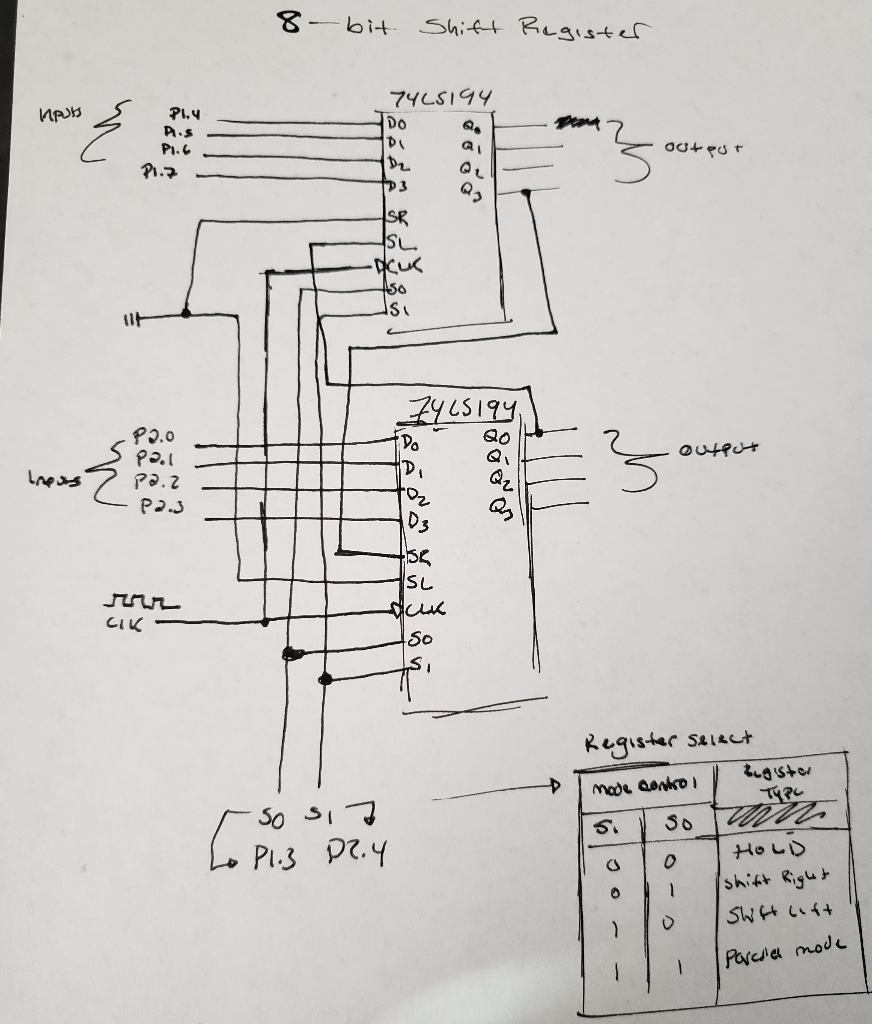 8-bit Shift Register
74LS194
Inputs
P1.4
P1.5
P1.6
P1.7
D0
D1
D2
D3
SR
SL
CLK
S0
S1
Q0
Q1
Q2
Q3
output
74LS194
Inputs
P2.0
P2.1
P2.2
P2.3
D0
D1
D2
D3
SR
SL
CLK
S0
S1
Q0
Q1
Q2
Q3
output
CLK
S0 S1
P1.3 P2.4
Register Select
Mode Control Register Type
S1 S0
0 0 HOLD
0 1 Shift Right
1 0 Shift Left
1 1 Parallel mode